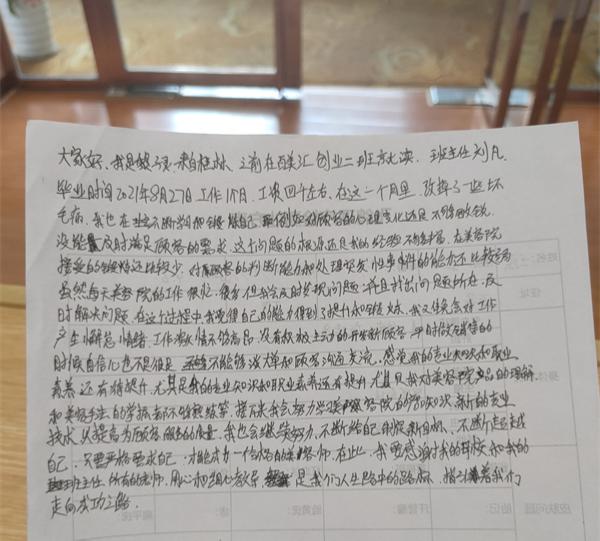 大家好、我是 来自桂林、之前在百美汇创业二班就读、班主任刘凡、
毕业时间2021年8月27日工作1个月、工资四千左右、在这一个月里、改掉了一些坏
毛病、我也在不断学习和锻炼自己 例如对顾客的心理变化还是不够敏锐、
没能及时满足顾客的要求、这个问题的根源还是我的经验不够丰富、在美容院
接受的锻炼还比较少、对顾客的判断能力和处理突发性事件的能力还比较弱
虽然每天美容院的工作很忙、很多但我会及时发现问题、并且找出问题所在、及
时解决问题、在这个过程中我觉得自己的能力得到了提升和锻炼、我又偶会对工作
产生懈怠情绪、工作激情不够高昂、没有积极主动的开发新顾客、平时做销售的
时候自信心也不是很足 不能够谈大单和顾客沟通交流、感觉我的专业知识和职业
素养还有待提升、尤其是我的专业知识和职业素养还有提升尤其是我对美容院产品的理解
和美容手法的掌握都不够熟练等、接下来我会努力学习美容院的知识、新的专业
技术、以提高为顾客服务的质量、我也会继续努力、不断给自己制定新目标、不断超越
自己、只要严格要求自己、才能成为一个合格的美容师、在此、我要感谢我的母校和我的
班主任、所有的老师、用心和细心教导、 是我们人生路中的路标、指引着我们
走向成功之路、